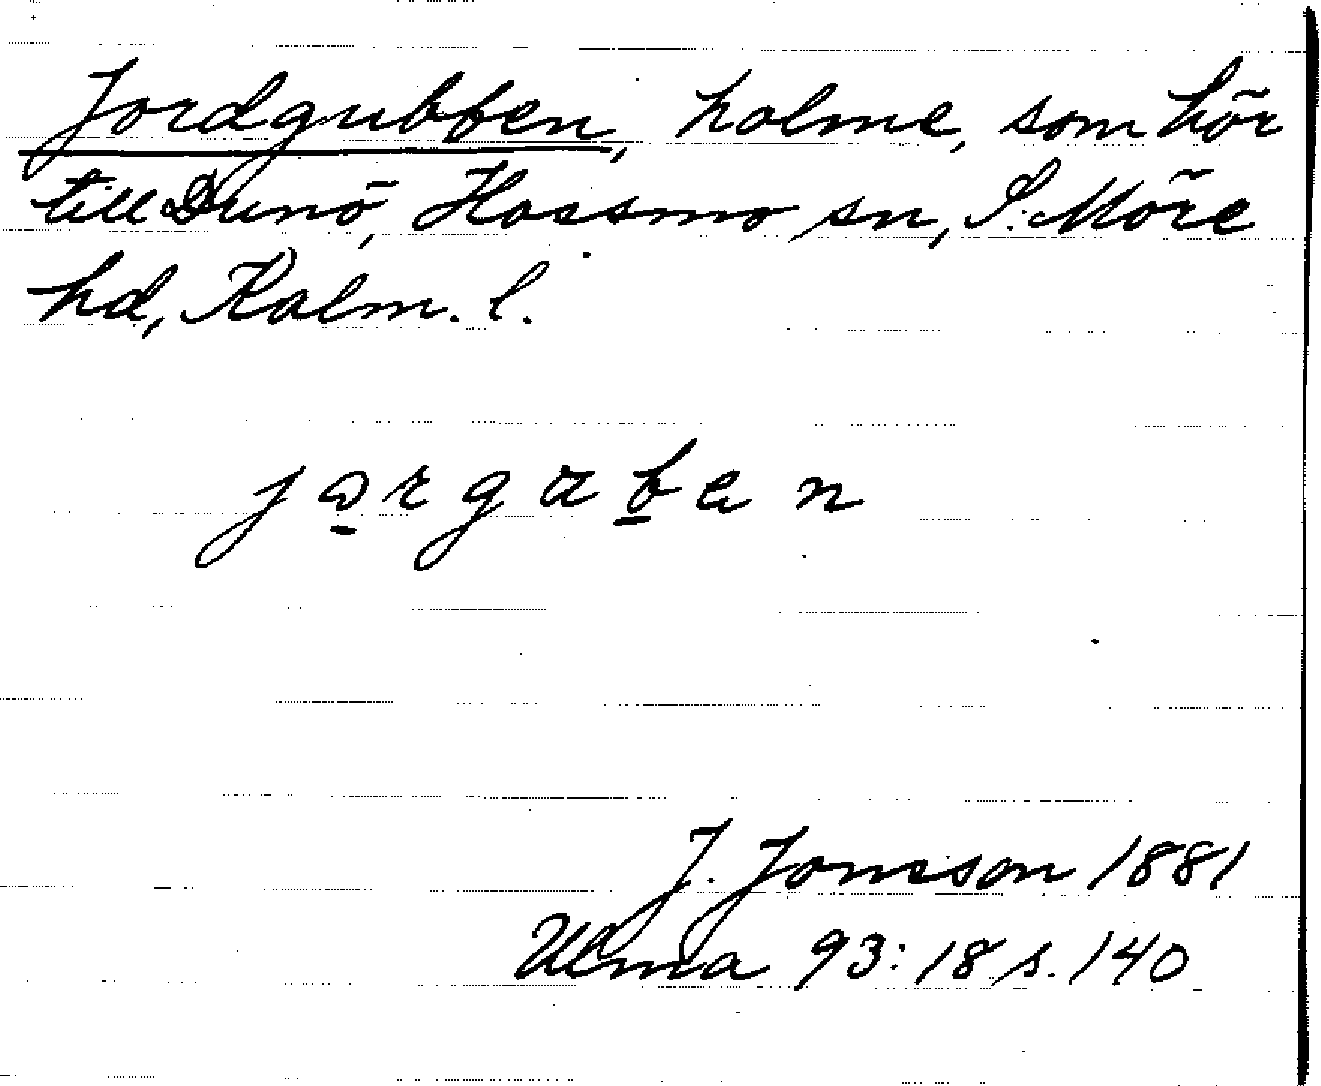 Jordgubben, holme, som hör
till Dunö, Hossmo sn, S. Möre
hd, Kalm. l.
J. Jonsson 1881
Ulma 93:18 s. 140